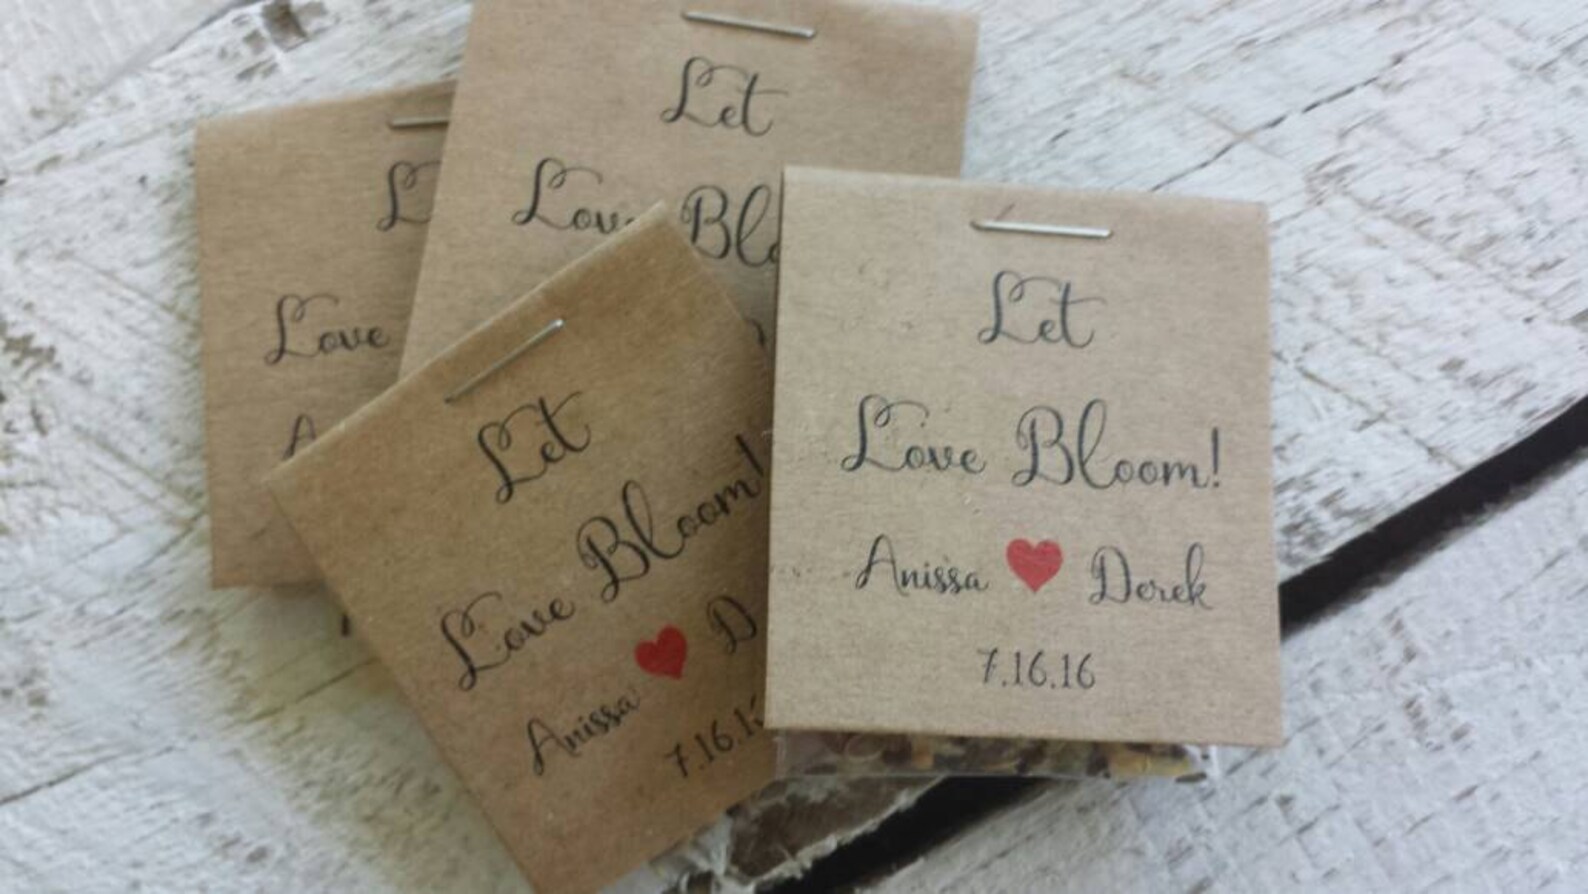 Let
Love
Let
Love
Let
Love Bloom!
Anissa
7.16.16
Let
Love Bloom!
Anissa Derek
7.16.16